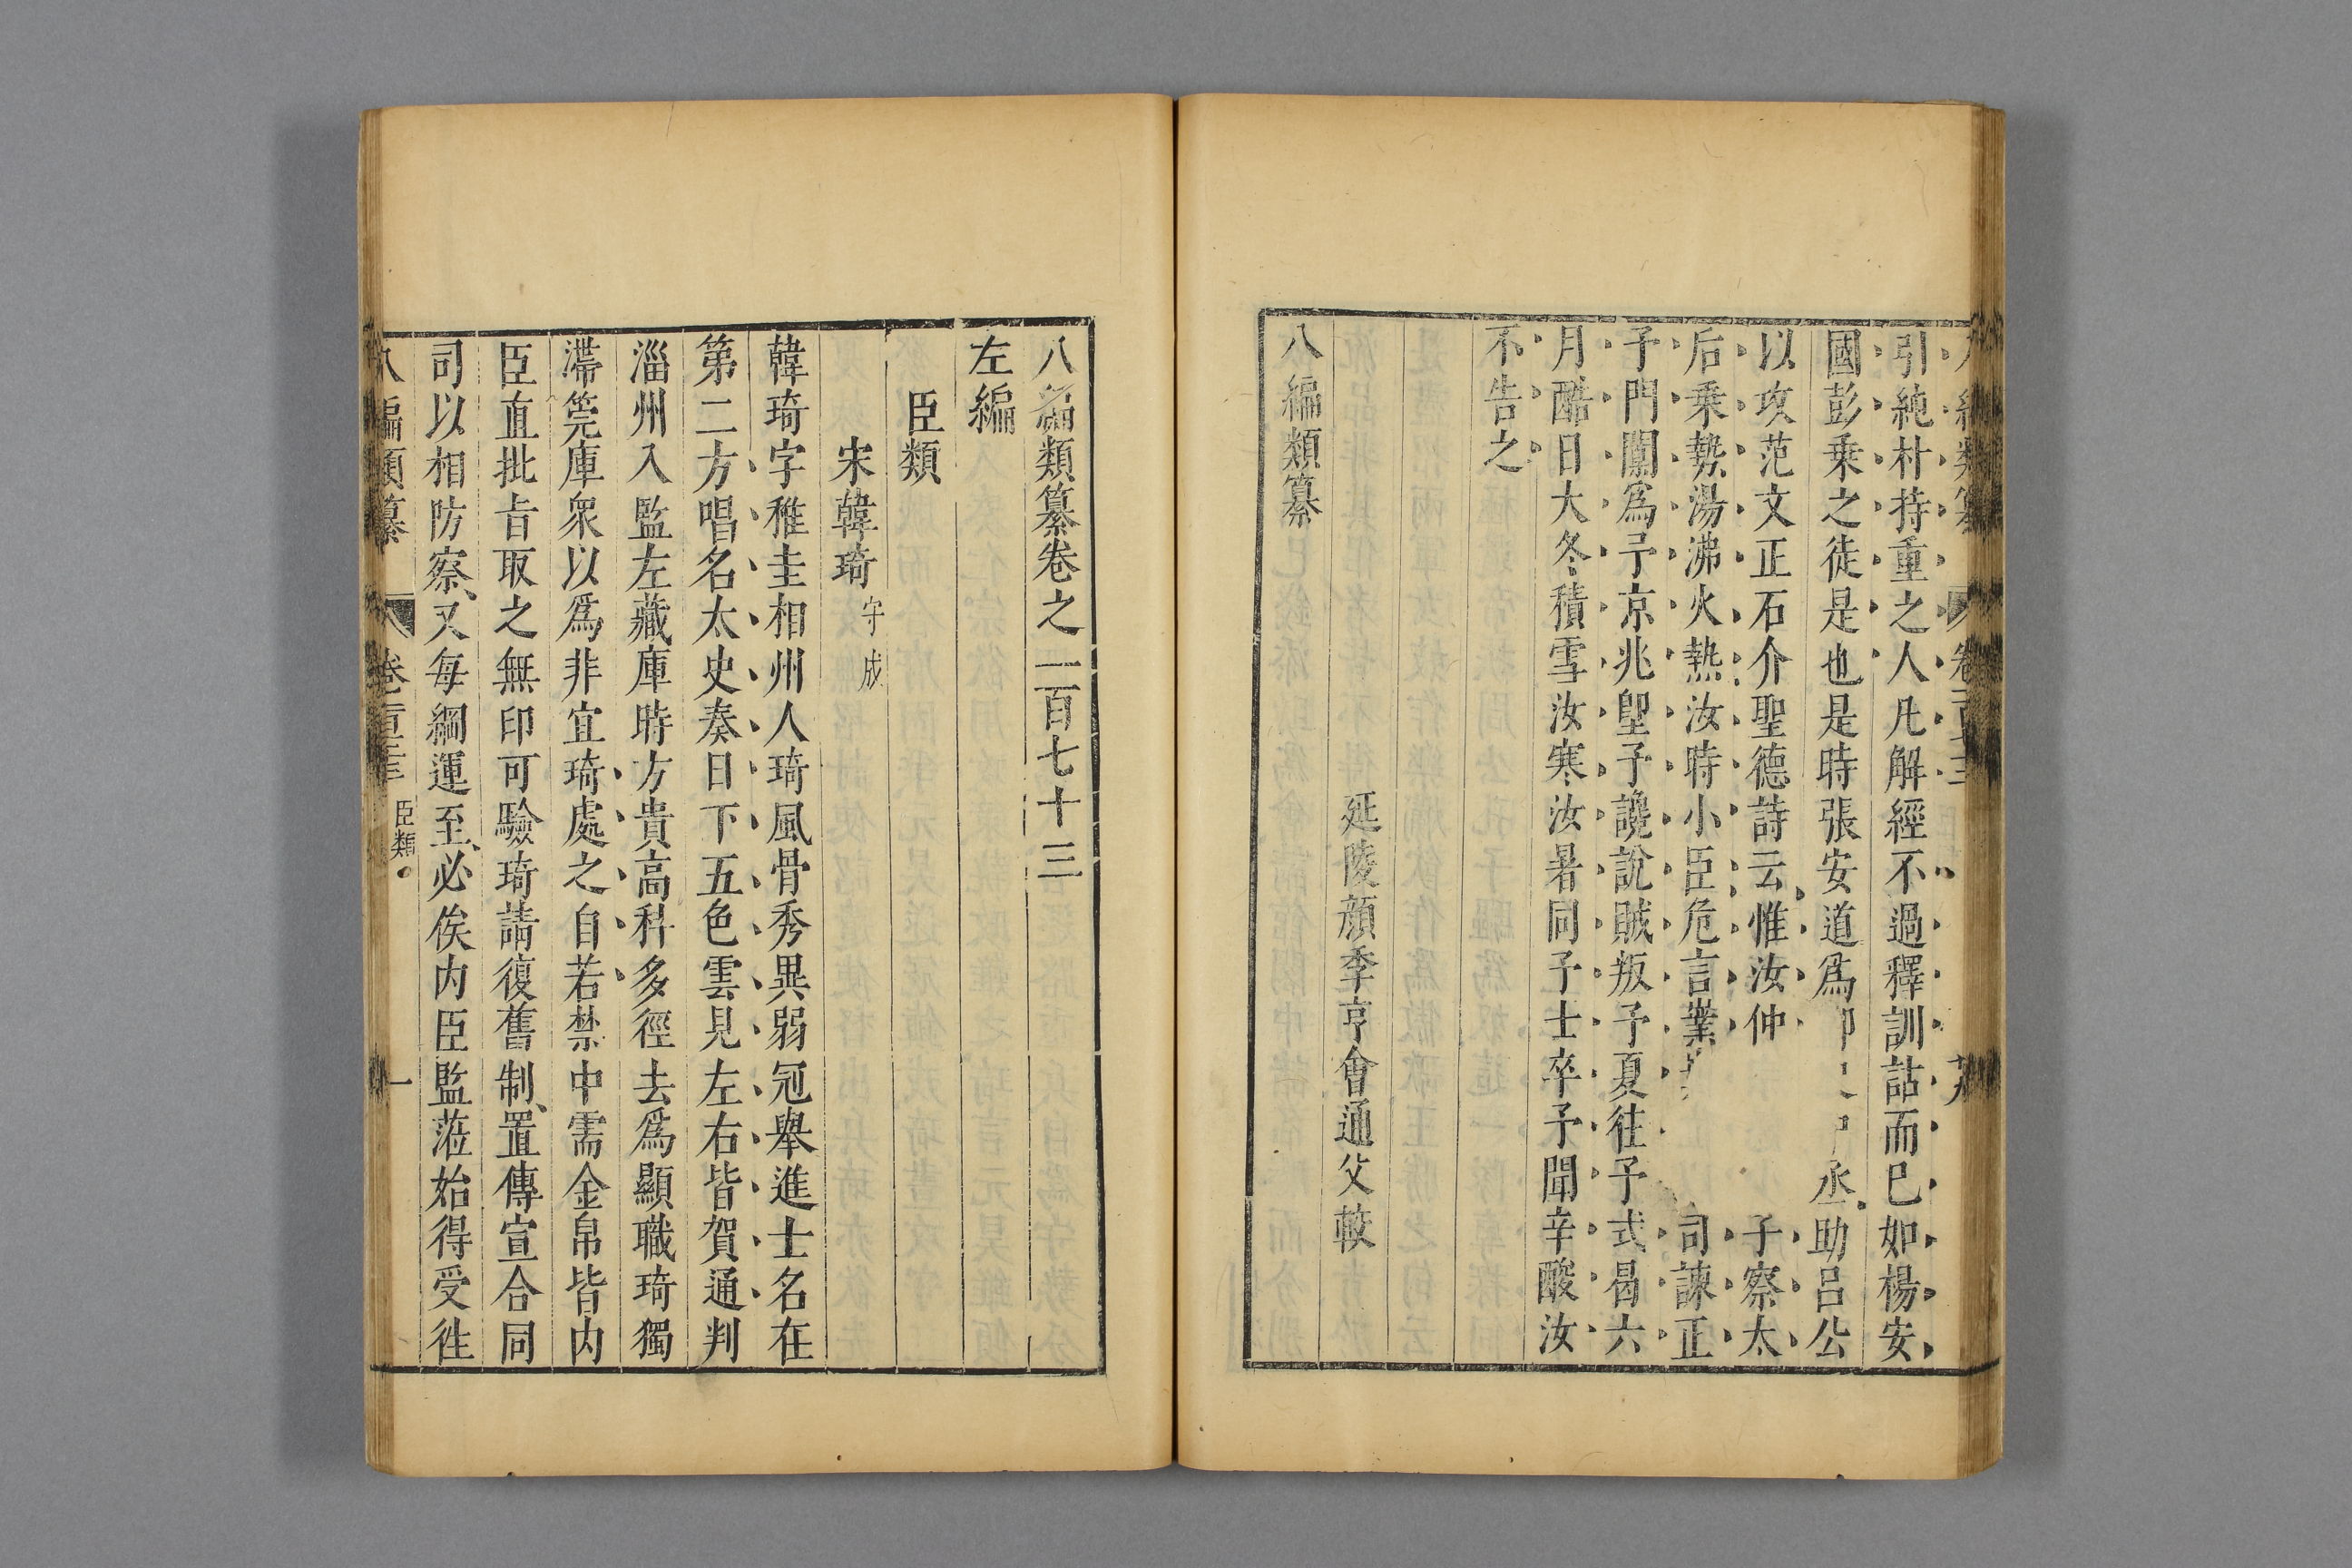 引純朴持重之人凡解經不過釋訓詁而巳如楊安
國彭乗之徒是也是時張安道爲丞助呂公
以攻范文正石介聖德詩云惟汝仲子察太
后乗勢湯沸火熱汝時小臣危言業司諫正
子門闑爲予京兆堲子讒說賊叛予夏往予式曷六
月酷日大冬積雪汝寒汝暑同予士卒予聞辛酸汝
不告之
延陵顔季亨會通父較
八編類纂
八編類纂卷之一百七十三
左編
臣類
宋韓琦 守成
韓琦字稚圭相州人琦風骨秀異弱冠舉進士名在
第二方唱名太史奏日下五色雲見左右皆賀通判
淄州入監左藏庫時方貴高科多徑去爲顯職琦獨
滯筦庫衆以爲非宜琦處之自若禁中需金帛皆内
臣直批旨取之無印可驗琦請復舊制置傳宣合同
司以相防察又每綱運至必俟内臣監蒞始得受徃
八編類纂 臣類 一